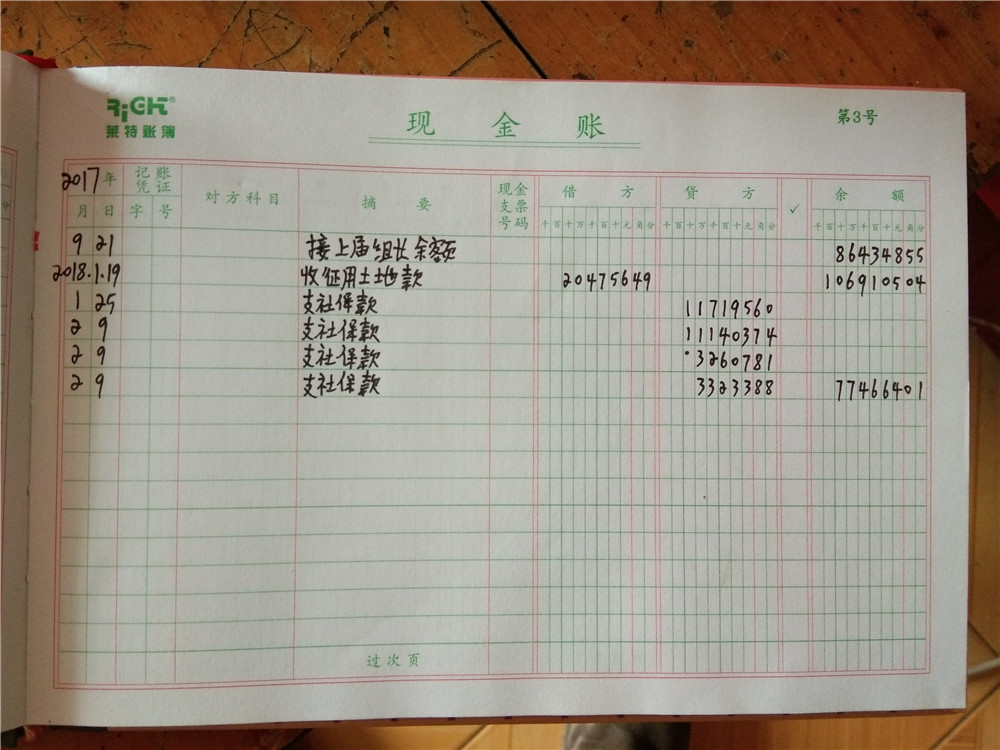 RiGHT®
莱特账簿
现金账
第3号
2017年 记账凭证 对方科目 摘要 现金支票号码 借方 贷方 ✓ 余额
月 日 字 号 千百十万千百十元角分 千百十万千百十元角分 千百十万千百十元角分
9 21 接上届组长余额 86434855
2018.1.19 收征用土地款 20475649 106910504
1 25 支社保款 11719560
2 9 支社保款 11140374
2 9 支社保款 3260781
2 9 支社保款 3323388 77466401
过次页